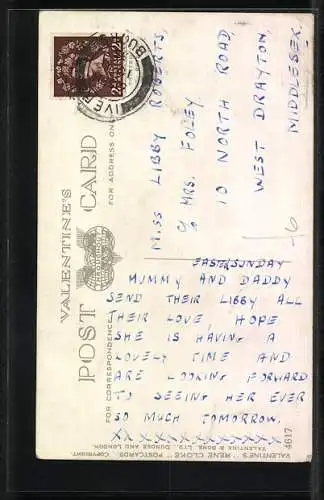 VALENTINE'S
POST CARD
FOR CORRESPONDENCE
FOR ADDRESS ON
MISS LIBBY ROBERTS,
c/o MRS. FOLEY,
10 NORTH ROAD,
WEST DRAYTON,
MIDDLESEX
EASTER SUNDAY
MUMMY AND DADDY
SEND THEIR LIBBY ALL
THEIR LOVE, HOPE
SHE IS HAVING A
LOVELY TIME AND
ARE LOOKING FORWARD
TO SEEING HER EVER
SO MUCH TOMORROW.
XXXXXXXXXXXX
4617
VALENTINE'S "RENE CLOKE" POSTCARDS COPYRIGHT.
VALENTINE & SONS, LTD., DUNDEE AND LONDON.
6